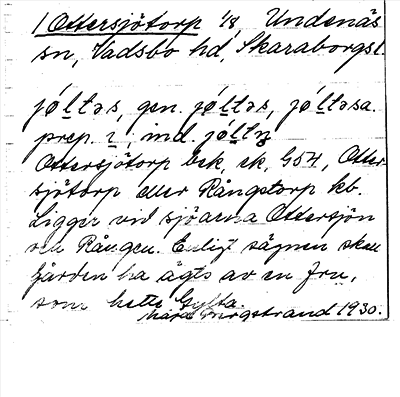 1 Ottersjötorp 1/8, Undenäs
sn, Vadsbo hd, Skaraborgs l.
jó̱ltəs, gen. jó̱ltəs, jó̱ltəsa.
prep. i, ind. jó̱ltn̥
Ottersjötorp bek, ek, G54, Otter
sjötorp eller Rångstorp kb.
Ligger vid sjöarna Ottersjön
och Rången. Enligt sägnen skall
gården ha ägts av en fru,
som hette Gylta.
Märta Bergstrand 1930.